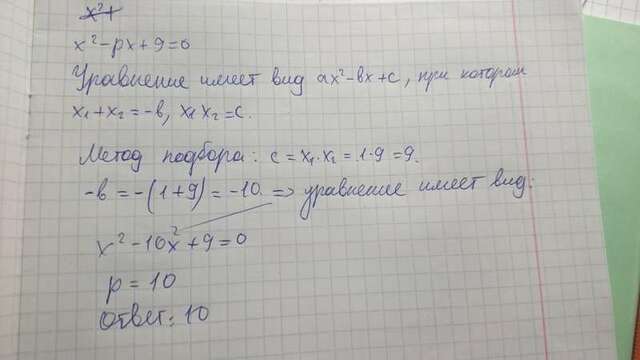 x²+
x² - px + 9 = 0
Уравнение имеет вид ax² - вx + c, при котором
x₁ + x₂ = -в, x₁ x₂ = c.
Метод подбора: c = x₁ · x₂ = 1 · 9 = 9.
-в = -(1+9) = -10 => уравнение имеет вид:
x² - 10x² + 9 = 0
p = 10
Ответ: 10